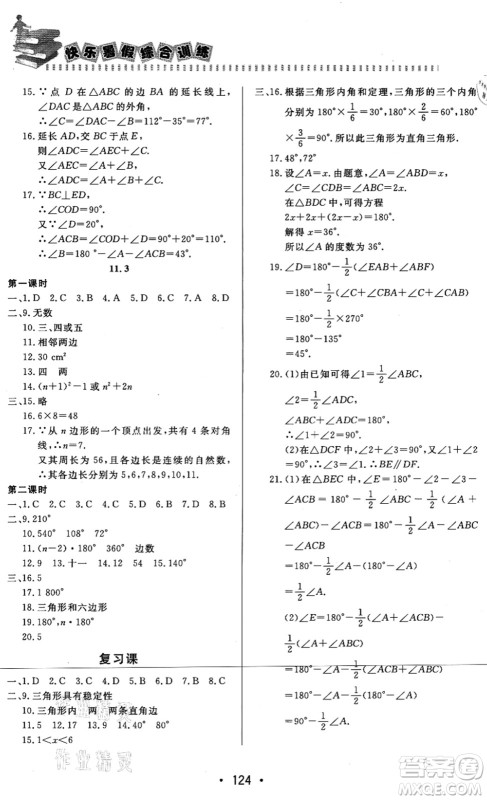 快乐暑假综合训练
15. ∵点 D 在△ABC 的边 BA 的延长线上,
∠DAC 是△ABC 的外角,
∴∠DAC=∠B+∠C.
16. 延长 AD,交 BC 于点 E,
则∠ADC=∠AEC+∠C.
又∠AEC=∠A+∠B,
∴∠ADC=∠A+∠B+∠C.
17. ∵BC⊥ED,
∴∠COD=90°.
又∵∠D=20°,
∴∠ACB=∠COD+∠D=110°.
∴∠B=180°-∠A-∠ACB=43°.
11.3
第一课时
一、1. D 2. C 3. B 4. A 5. C 6. C 7. C 8. A
二、9. 无数
10. 三、四或五
11. 相邻两边
12. 30 cm²
13. 四 两
14. (n+1)²-1 或 n²+2n
三、15. 略
16. 6×8=48
17. ∵从 n 边形的一个顶点出发,共有 4 条对角
线,∴n=7.
又其周长为 56,且各边长是连续的自然数,
∴其各边长分别为 5,6,7,8,9,10,11.
第二课时
一、1. D 2. C 3. C 4. C 5. D 6. C 7. C 8. C
二、9. 210°
10. 540° 108° 72°
11. (n-2)·180° 360° 边数
12. 9 13. 十一 14. 12 54 15. 140°
三、16. 5
17. 1 800°
18. 三角形和六边形
19. 180°,n·180°
20. 5
复习课
一、1. D 2. C 3. C 4. D 5. A 6. C 7. D 8. C
二、9. 三角形具有稳定性
10. 三角形内 两 两条直角边
11. 9.5 12. 17 13. 9 14. 40°
15. 1<x<6
三、16. 根据三角形内角和定理,三角形的三个内角
分别为 180°×1/6=30°,180°×2/6=60°,180°
×3/6=90°. 所以此三角形为直角三角形.
17. 48°,72°
18. 设∠A=x. 由题意,可得∠A=∠ABD=x,
∠BDC=∠C=∠ABC=2x.
在△BDC 中,可得方程
2x+2x+(2x-x)=180°.
解得 x=36°.
所以∠A 的度数为 36°.
19. ∠D=180°-1/2(∠EAB+∠ABF)
=180°-1/2(∠C+∠ABC+∠C+∠CAB)
=180°-1/2×270°
=180°-135°
=45°.
20. (1)由已知可得∠1=1/2∠ABC,
∠2=1/2∠ADC,
∠ABC+∠ADC=180°,
∴∠1+∠2=90°.
(2)在△DCF 中,∠2+∠3=90°,
∠1+∠2=90°,∴∠1=∠3. ∴BE∥DF.
21. (1)在△BEC 中,∠E=180°-1/2∠ABC-
∠ACB-1/2(∠A+∠ABC)=180°-1/2∠A
-∠ABC-∠ACB
=180°-1/2∠A-(180°-∠A)
=1/2∠A.
(2)∠E=180°-1/2(∠A+∠ACB)-1/2(∠A
+∠ABC)
=180°-1/2(∠A+∠ACB+∠ABC+∠A)
=180°-1/2(180°+∠A)
=90°-1/2∠A.
124
作业精灵
作业精灵
MXQE.COM